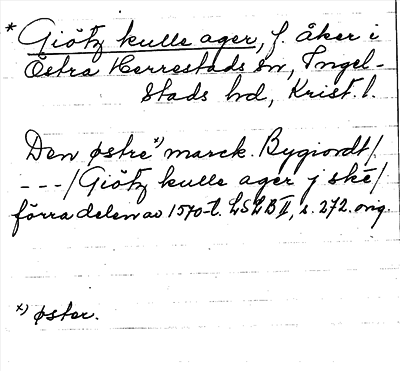 * Giötz kulle ager, f. åker i
Östra Herrestads sn, Ingel-
stads hd, Krist. l.
Den østre *) marck. Bygiordt/.
---/ Giötz kulle ager j ské/
förra delen av 1570-t. LSLB II, s. 272. orig.
*) øster.